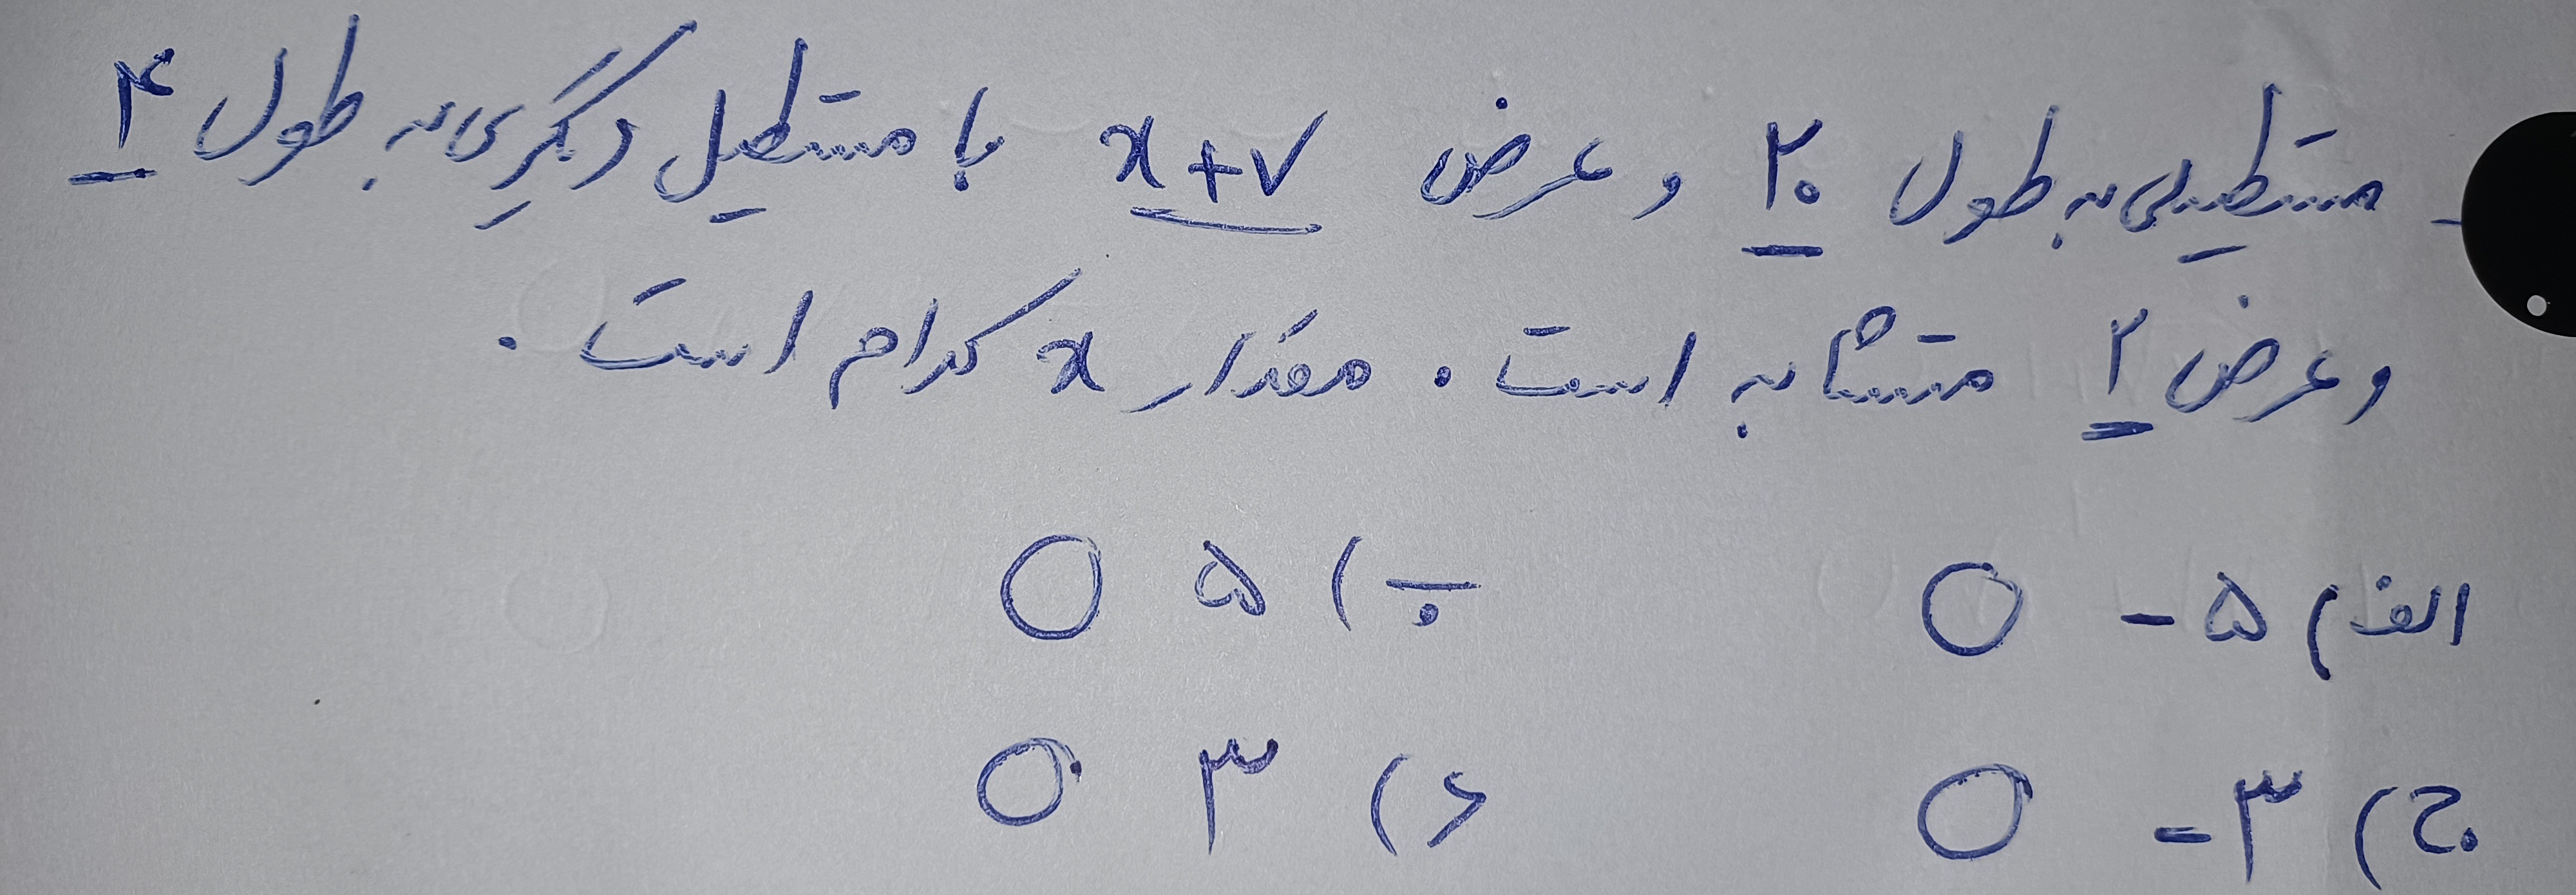 - مستطیلی به طول ۲۰ و عرض x+۷ با مستطیل دیگری به طول ۴
و عرض ۲ متشابه است. مقدار x کدام است.
الف) ۵- ب) ۵
ج) ۳- د) ۳